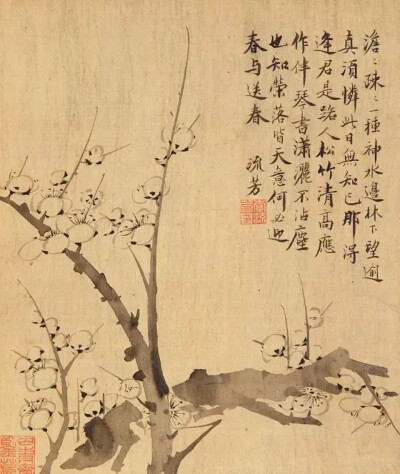 澹ミ疎ミ一種神水邊林下望逾
真須憐此日無知己那得
逢君是路人松竹清高應
作伴琴書瀟灑不沾塵
也知榮落皆天意何必迎
春与送春 流芳